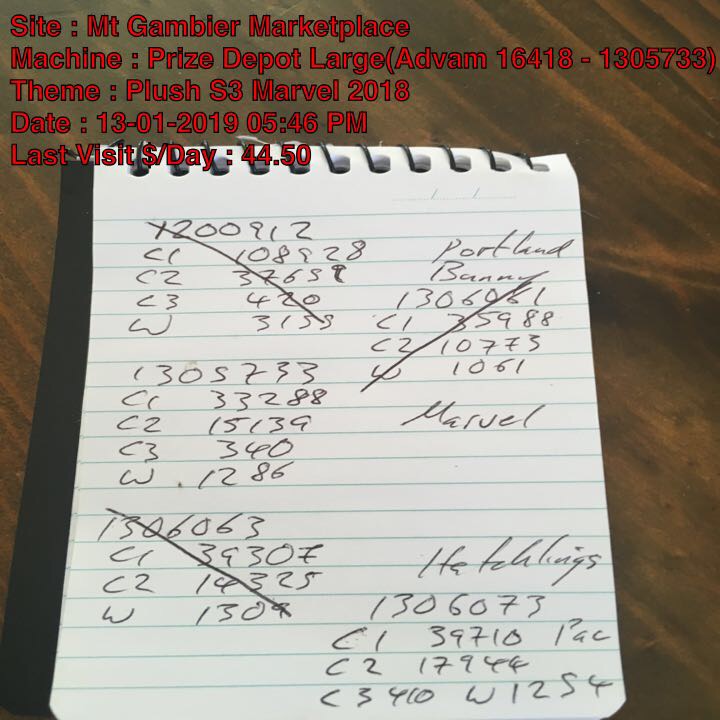 Site : Mt Gambier Marketplace
Machine : Prize Depot Large(Advam 16418 - 1305733)
Theme : Plush S3 Marvel 2018
Date : 13-01-2019 05:46 PM
Last Visit $/Day : 44.50
1200912
C1 108928
C2 37659
C3 420
W 3155
Portland
Bunny
1306061
C1 35988
C2 10773
W 1061
1305733
C1 33288
C2 15139
C3 340
W 1286
Marvel
1306063
C1 39307
C2 14325
W 1309
Hatchlings
1306073
C1 39710 Pac
C2 17944
C3 410 W 1254